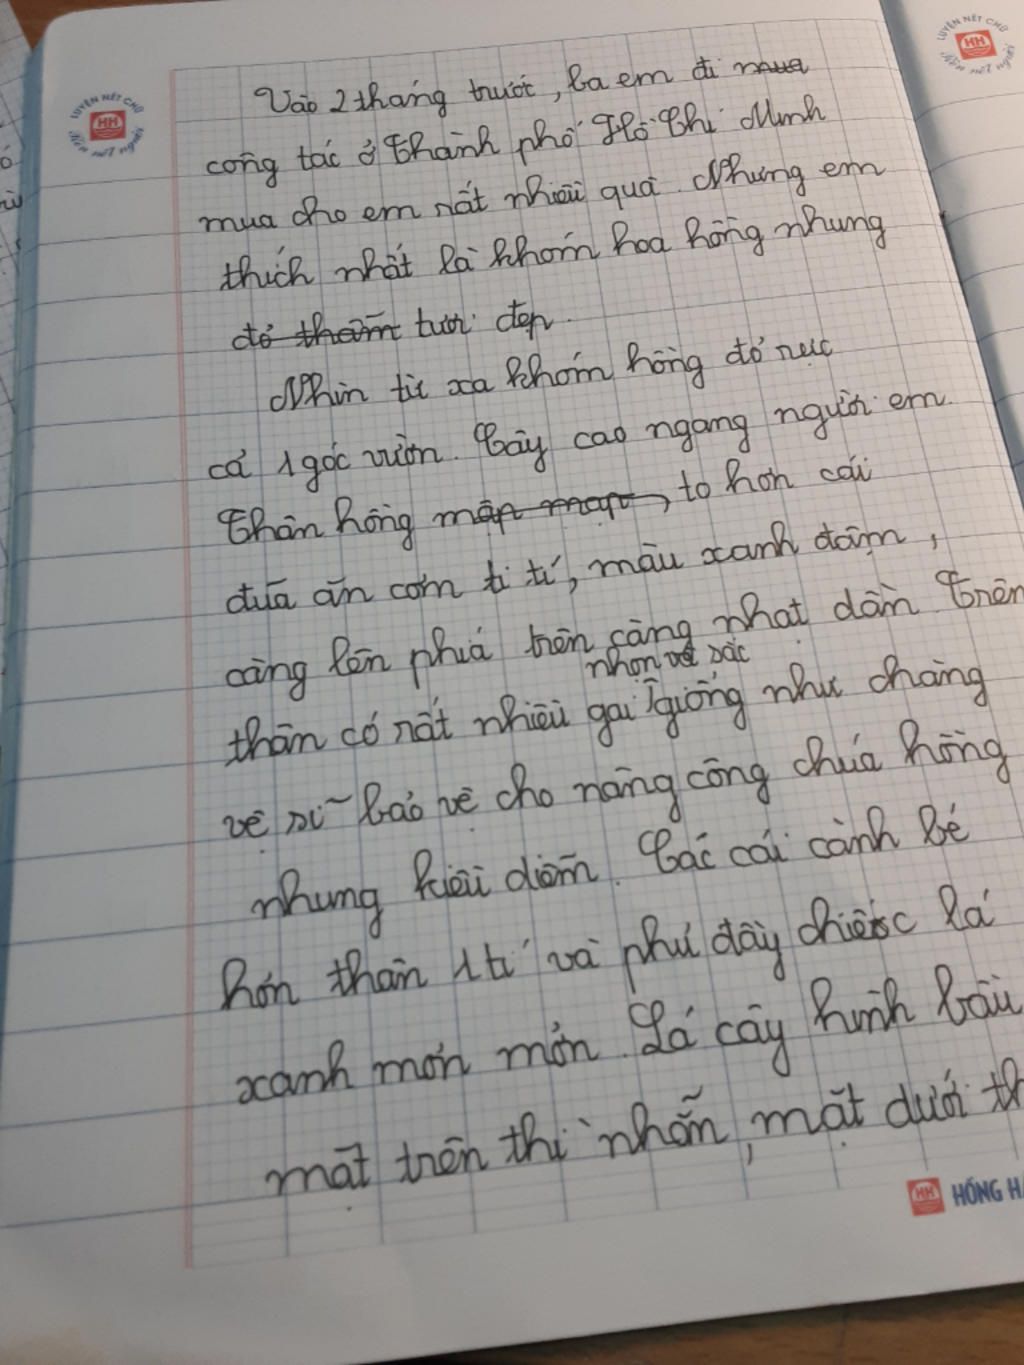 LUYỆN NÉT CHỮ
HH
Rèn nết người
LUYỆN NÉT CHỮ
HH
Rèn nết người
Vào 2 tháng trước, ba em đi mua
công tác ở Thành phố Hồ Chí Minh
mua cho em rất nhiều quà. Nhưng em
thích nhất là khóm hoa hồng nhung
đỏ thắm tươi đẹp.
Nhìn từ xa khóm hồng đỏ rực
cả 1 góc vườn. Cây cao ngang người em.
Thân hồng mập mạp, to hơn cái
đũa ăn cơm tí tí, màu xanh đậm,
càng lên phía trên càng nhạt dần. Trên
nhọn và sắc
thân có rất nhiều gai giống như chàng
vệ sĩ bảo vệ cho nàng công chúa hồng
nhung kiều diễm. Các cái cành bé
hơn thân 1 tí và phủ đầy chiếc lá
xanh mơn mởn. Lá cây hình bầu
mặt trên thì nhẵn, mặt dưới th
HH HỒNG H